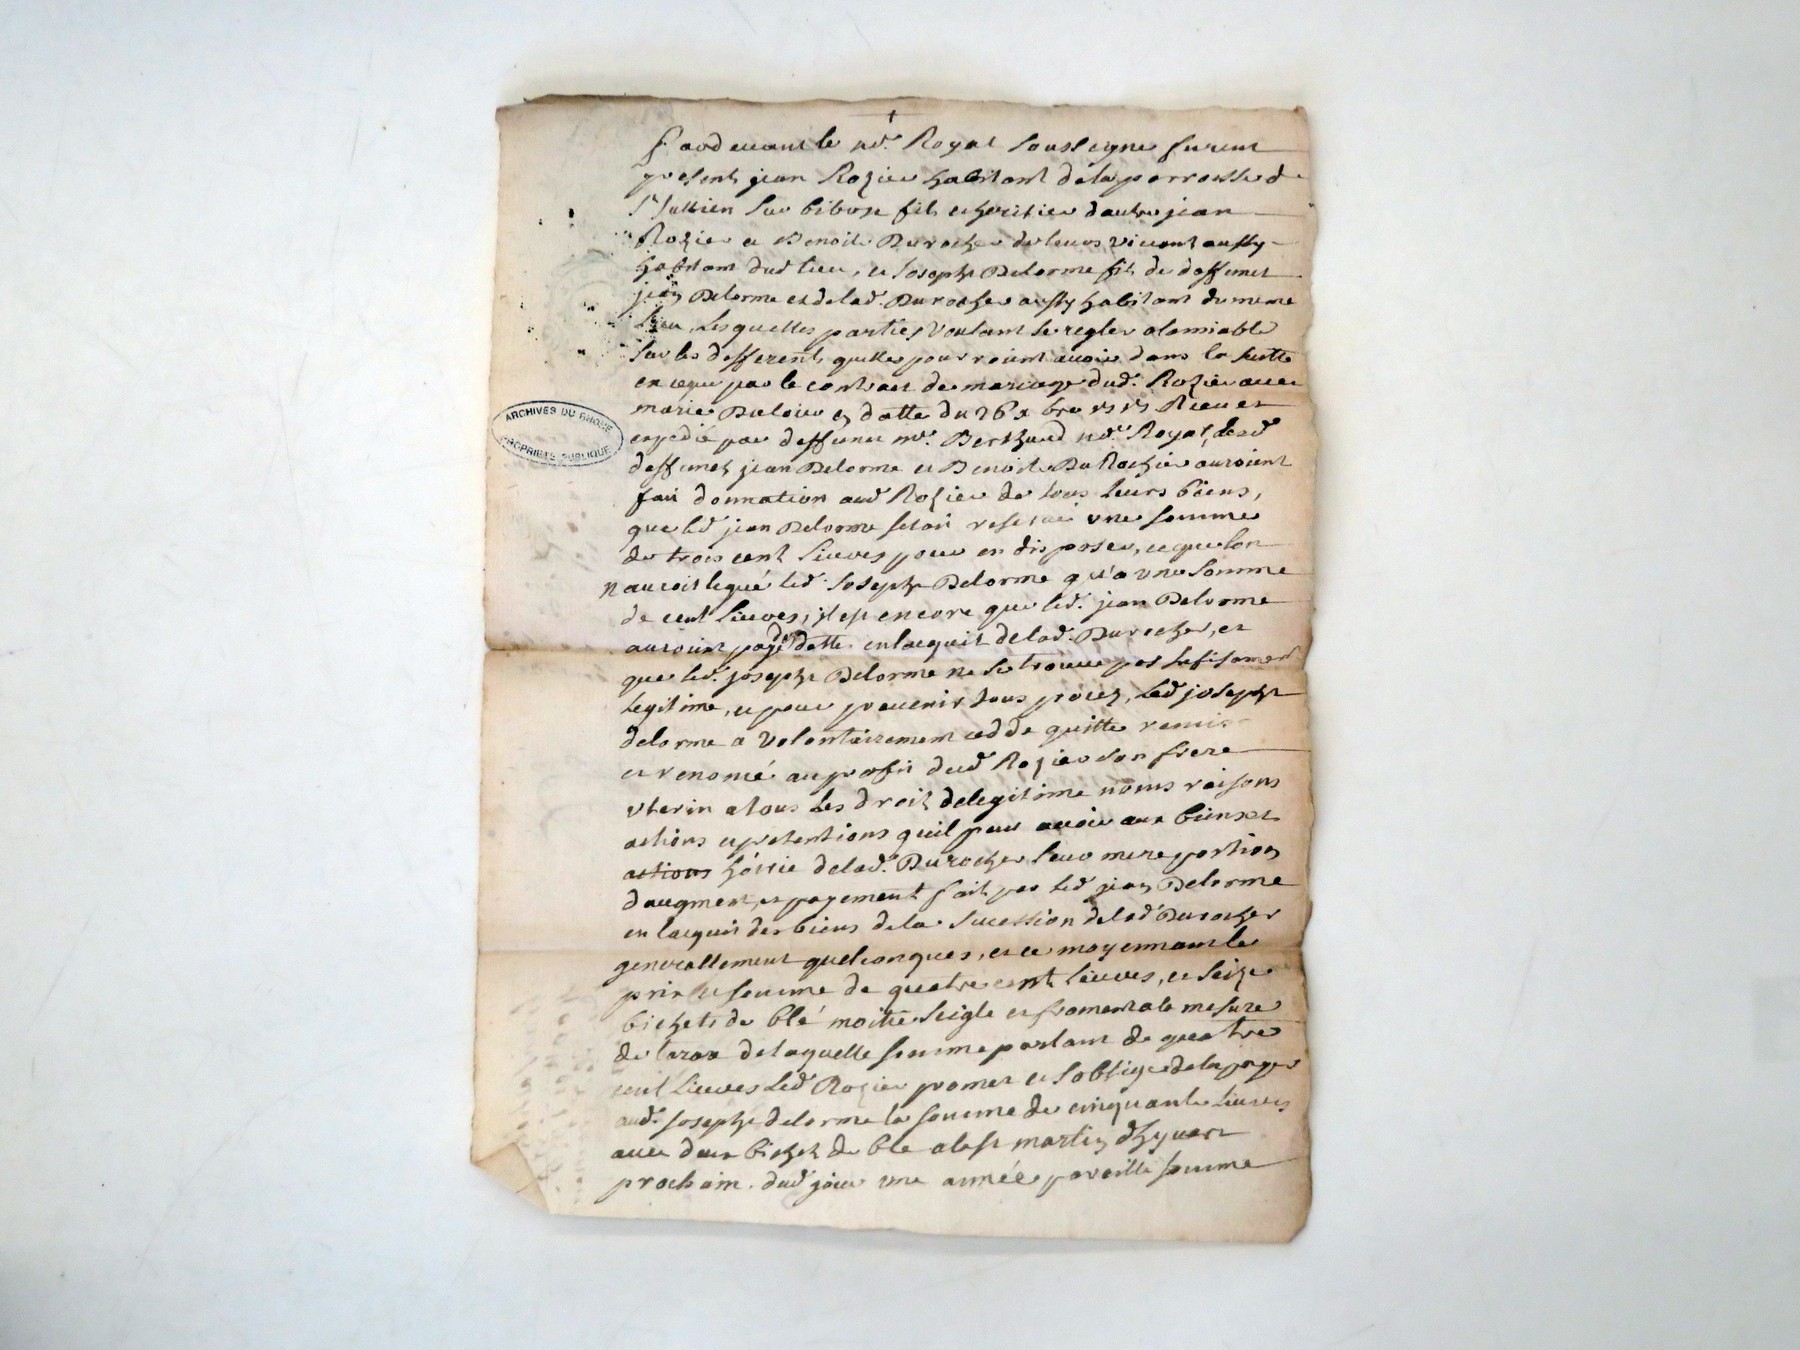 †
Pardevant le no.re Royal soussigne furent
presents jean Rozier habitant de la parroisse d
St Jullien sur bibost fils et heritier d'autre jean
Rozier et Benoite Durocher de leurs vivant aussy
habitant dud lieu, et Joseph Delorme fils de deffunct
jean Delorme et de lad. Durocher aussy habitant du meme
lieu, lesquelles parties voulant se regler alamiable
sur les defferents quelles pourroient avoir dans la suitte
en ce que par le contract de mariage dud. Rozier avec
marie en datte du 26 Receu et
expedié par deffunct me. Berthaud no.re Royal, lesd
deffunct jean Delorme et Benoite Du Rochér auroient
fait donnation aud Rozier de tous leurs biens,
que led jean Delorme setoit reservé une somme
de trois cent livres pour en disposer, et que lon
n auroit legué led. Joseph Delorme qu'a une somme
de cent livres, et encore que led. jean Delorme
auroint payé des dette en lacquit de lad. Durocher, et
que led. joseph Delorme ne se trouve pas sufisament
legitime, et pour prevenir tous procez, led joseph
delorme a volontairement cedde quitte remis
et renoncé au profit dud Rozier son frere
uterin a tous les droits de legitime noms raisons
actions et pretentions quil peut avoir aux biens et
actions hoirie de lad. Durocher leur mere portion
daugment, et payement fait par led jean Delorme
en lacquit des biens de la sucession de lad Durocher
generallement quelconques, et ce moyennant le
prix et somme de quatre cent livres, et seize
bichets de blé moitié seigle et froment ale mesure
de tarar de laquelle somme portant de quatre
cent livres led Rozier promet et soblige de la payer
aud. Joseph delorme la somme de cinquante livres
avec deux bichet de ble a la st martin dhyvert
prochain. dud jour une année pareille somme
ARCHIVES DU RHONE
PROPRIETE PUBLIQUE